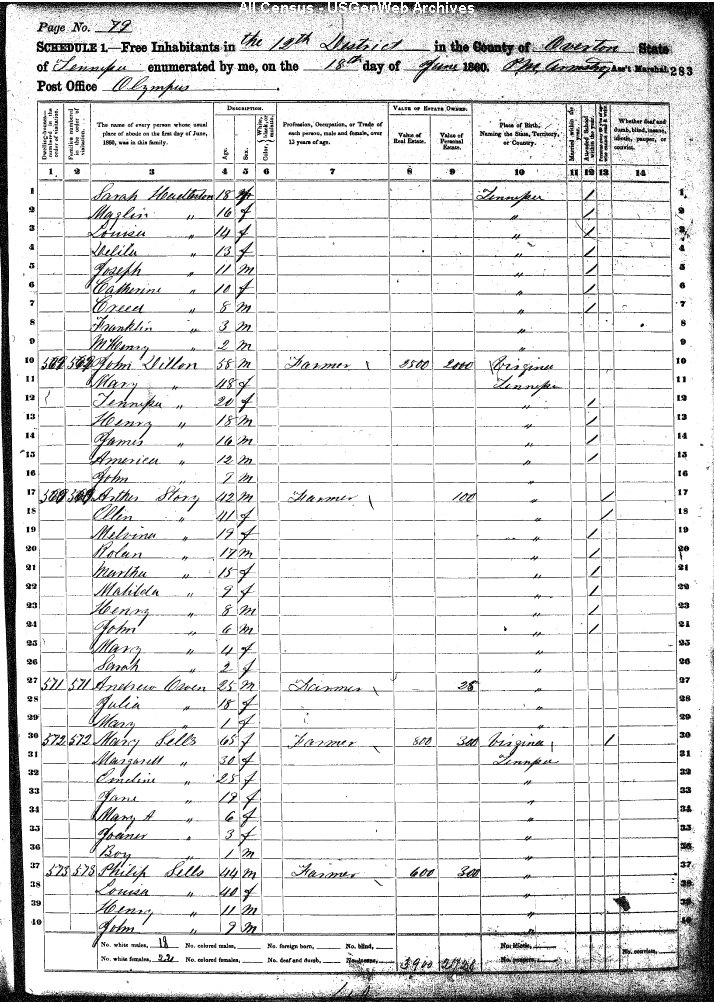 All Census - USGenWeb Archives
Page No. 79
SCHEDULE 1.—Free Inhabitants in the 12th District in the County of Overton State
of Tennessee enumerated by me, on the 18th day of June 1860. Ass't Marshal. 283
Post Office Olympus
DESCRIPTION. VALUE OF ESTATE OWNED.
Dwelling-houses numbered in the order of visitation. Families numbered in the order of visitation. The name of every person whose usual place of abode on the first day of June, 1860, was in this family. Age. Sex. Color, White, black, or mulatto. Profession, Occupation, or Trade of each person, male and female, over 15 years of age. Value of Real Estate. Value of Personal Estate. Place of Birth, Naming the State, Territory, or Country. Married within the year. Attended School within the year. Whether deaf and dumb, blind, insane, idiotic, pauper, or convict.
1 2 3 4 5 6 7 8 9 10 11 12 13 14
1 Sarah 18 f Tennessee / 1
2 " 16 f " / 2
3 Louisa " 14 f " / 3
4 Delila " 13 f " / 4
5 Joseph " 11 m " / 5
6 Catherine " 10 f " / 6
7 Creed " 8 m " / 7
8 Franklin " 3 m " 8
9 McHenry " 2 m " 9
10 John Dillon 58 m Farmer 2500 2000 Virginia 10
11 Mary " 48 f Tennessee 11
12 Tennessee " 20 f " / 12
13 Henry " 18 m " / 13
14 James " 16 m " / 14
15 America " 12 m " / 15
16 John " 9 m " 16
17 Arther Story 42 m Farmer 100 " / 17
18 Ollin " 41 f " / 18
19 Melvina " 19 f " / 19
20 Rolan " 17 m " / 20
21 Martha " 15 f " / 21
22 Matilda " 9 f " / 22
23 Henry " 8 m " / 23
24 John " 6 m " / 24
25 Mary " 4 f " 25
26 Sarah " 2 f " 26
27 571 571 Andrew Owen 25 m Farmer 25 " 27
28 Julia " 18 f " 28
29 Mary " 1 f " 29
30 572 572 Mary Sells 65 f Farmer 800 300 Virginia / 30
31 Margarett " 30 f Tennessee 31
32 Emeline " 25 f " 32
33 Jane " 19 f " 33
34 Mary A " 6 f " 34
35 Joaner " 3 f " 35
36 Boy " 1 m " 36
37 573 573 Philip Sells 44 m Farmer 600 300 " 37
38 Louisa " 40 f " 38
39 Henry " 11 m " 39
40 John " 9 m " 40
No. white males, 18 No. colored males, No. foreign born, No. blind, No. idiotic,
No. white females, 22 No. colored females, No. deaf and dumb, No. insane, 3900 No. paupers, No. convicts,